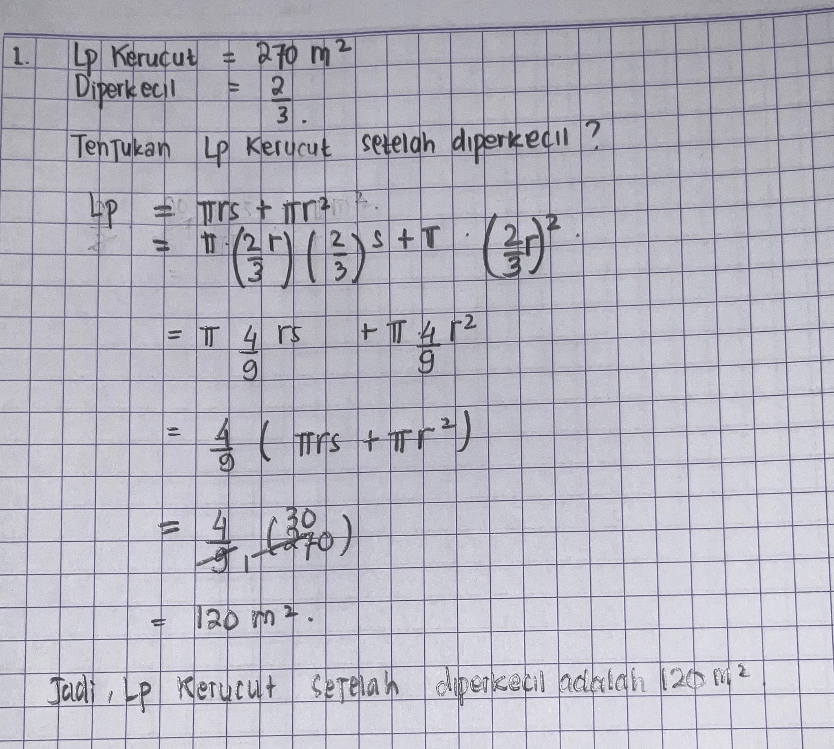 1. Lp Kerucut = 270 m²
Diperkecil = 2/3.
Tentukan Lp Kerucut setelah diperkecil?
Lp = πrs + πr².
= π · (2/3 r) (2/3) s + π · (2/3 r)².
= π 4/9 rs + π 4/9 r²
= 4/9 ( πrs + πr²)
= 4/9, (270) 30 1
= 120 m².
Jadi, Lp Kerucut setelah diperkecil adalah 120 m².